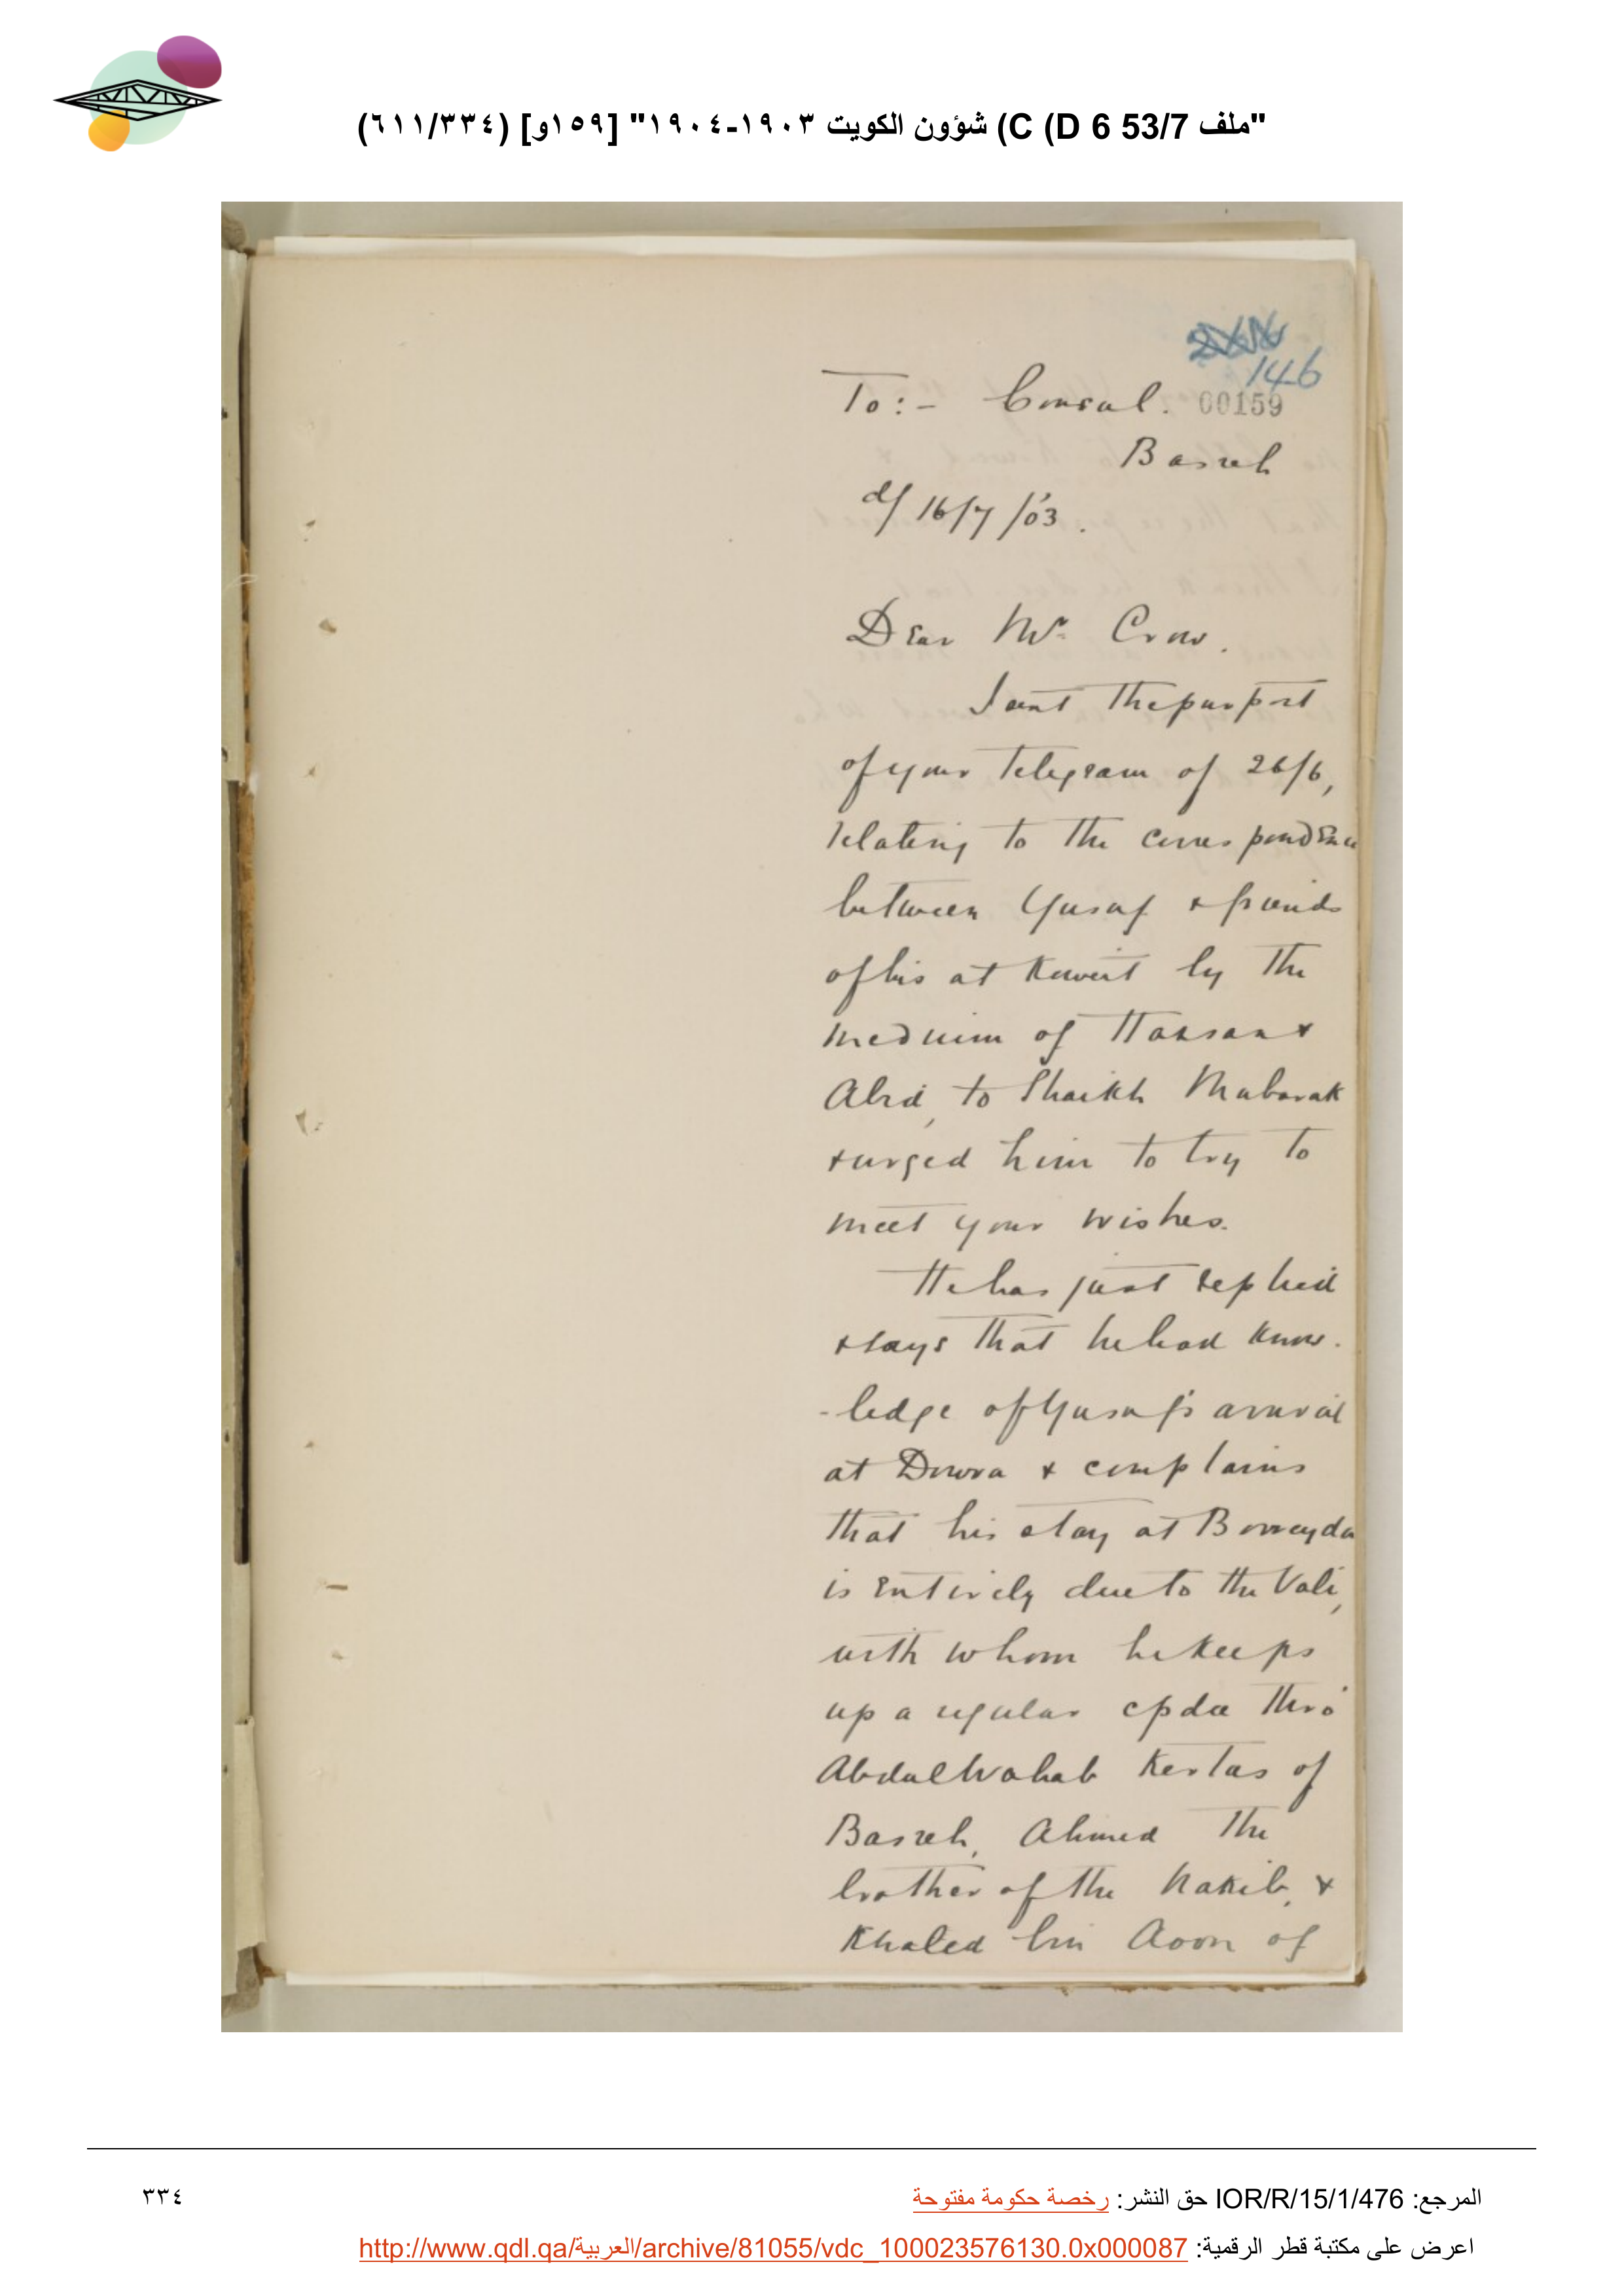 "ملف 53/7 D 6) C) شؤون الكويت ١٩٠٣-١٩٠٤" [١٥٩و] (٦١١/٣٣٤)
146
To:- Consul. 00159
Basreh
d/ 16/7/'03.
Dear Mr. Crow.
I sent the purport
of your telegram of 26/6,
relating to the correspondence
between Yusuf & friends
of his at Kuweit by the
medium of Hassan &
Abid, to Shaikh Mubarak
& urged him to try to
meet your wishes.
He has just replied
& says that he had know-
-ledge of Yusuf's arrival
at Dowra & complains
that his stay at Boreyda
is entirely due to the Vali,
with whom he keeps
up a regular cpdce thro'
Abdul Wahab Kertas of
Basreh, Ahmed the
brother of the Nakib, &
Khaled bin Aoon of
المرجع: IOR/R/15/1/476 حق النشر: رخصة حكومة مفتوحة
٣٣٤
اعرض على مكتبة قطر الرقمية: http://www.qdl.qa/العربية/archive/81055/vdc_100023576130.0x000087